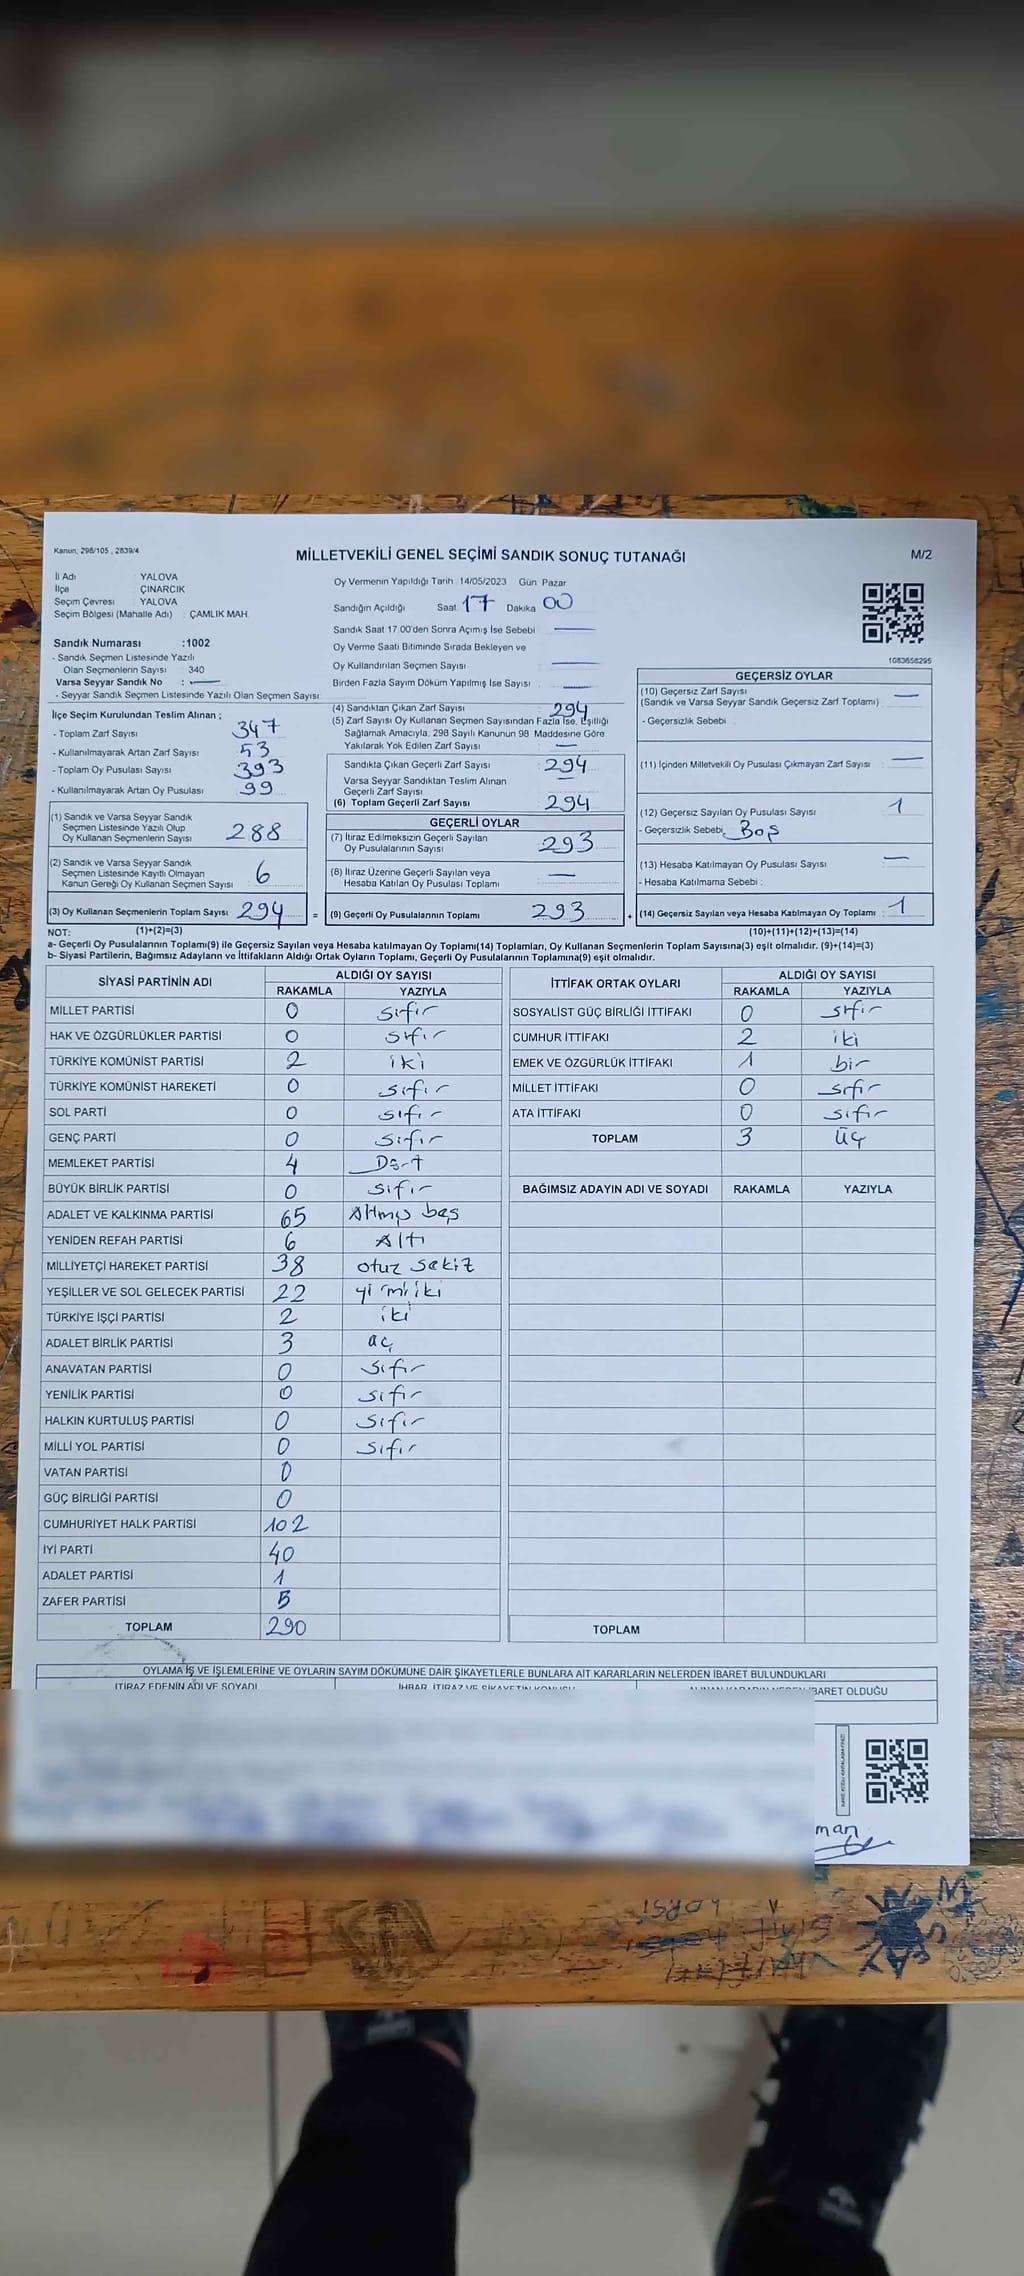 Kanun, 298/105 , 2839/4
MİLLETVEKİLİ GENEL SEÇİMİ SANDIK SONUÇ TUTANAĞI
M/2
İl Adı : YALOVA
İlçe : ÇINARCIK
Seçim Çevresi : YALOVA
Seçim Bölgesi (Mahalle Adı) : ÇAMLIK MAH.
Oy Vermenin Yapıldığı Tarih 14/05/2023 Gün Pazar
Sandığın Açıldığı Saat 17 Dakika 00
Sandık Saat 17:00'den Sonra Açımış İse Sebebi
Oy Verme Saati Bitiminde Sırada Bekleyen ve
Oy Kullandırılan Seçmen Sayısı :
Birden Fazla Sayım Döküm Yapılmış İse Sayısı :
Sandık Numarası :1002
- Sandık Seçmen Listesinde Yazılı
Olan Seçmenlerin Sayısı : 340
Varsa Seyyar Sandık No :
- Seyyar Sandık Seçmen Listesinde Yazılı Olan Seçmen Sayısı:
1083658295
İlçe Seçim Kurulundan Teslim Alınan ;
- Toplam Zarf Sayısı 347
- Kullanılmayarak Artan Zarf Sayısı 53
- Toplam Oy Pusulası Sayısı 393
- Kullanılmayarak Artan Oy Pusulası 99
(1) Sandık ve Varsa Seyyar Sandık
Seçmen Listesinde Yazılı Olup
Oy Kullanan Seçmenlerin Sayısı 288
(2) Sandık ve Varsa Seyyar Sandık
Seçmen Listesinde Kayıtlı Olmayan
Kanun Gereği Oy Kullanan Seçmen Sayısı 6
(3) Oy Kullanan Seçmenlerin Toplam Sayısı 294
(4) Sandıktan Çıkan Zarf Sayısı 294
(5) Zarf Sayısı Oy Kullanan Seçmen Sayısından Fazla İse, Eşitliği
Sağlamak Amacıyla, 298 Sayılı Kanunun 98 Maddesine Göre
Yakılarak Yok Edilen Zarf Sayısı :
Sandıkta Çıkan Geçerli Zarf Sayısı : 294
Varsa Seyyar Sandıktan Teslim Alınan
Geçerli Zarf Sayısı
(6) Toplam Geçerli Zarf Sayısı : 294
GEÇERLİ OYLAR
(7) İtiraz Edilmeksizin Geçerli Sayılan
Oy Pusulalarının Sayısı : 293
(8) İtiraz Üzerine Geçerli Sayılan veya
Hesaba Katılan Oy Pusulası Toplamı :
= (9) Geçerli Oy Pusulalarının Toplamı 293
GEÇERSİZ OYLAR
(10) Geçersiz Zarf Sayısı
(Sandık ve Varsa Seyyar Sandık Geçersiz Zarf Toplamı)
- Geçersizlik Sebebi
(11) İçinden Milletvekili Oy Pusulası Çıkmayan Zarf Sayısı
(12) Geçersiz Sayılan Oy Pusulası Sayısı 1
- Geçersizlik Sebebi Boş
(13) Hesaba Katılmayan Oy Pusulası Sayısı
- Hesaba Katılmama Sebebi :
+ (14) Geçersiz Sayılan veya Hesaba Katılmayan Oy Toplamı : 1
NOT: (1)+(2)=(3)
(10)+(11)+(12)+(13)=(14)
a- Geçerli Oy Pusulalarının Toplamı(9) ile Geçersiz Sayılan veya Hesaba katılmayan Oy Toplamı(14) Toplamları, Oy Kullanan Seçmenlerin Toplam Sayısına(3) eşit olmalıdır. (9)+(14)=(3)
b- Siyasi Partilerin, Bağımsız Adayların ve İttifakların Aldığı Ortak Oyların Toplamı, Geçerli Oy Pusulalarının Toplamına(9) eşit olmalıdır.
SİYASİ PARTİNİN ADI ALDIĞI OY SAYISI
RAKAMLA YAZIYLA
MİLLET PARTİSİ 0 sıfır
HAK VE ÖZGÜRLÜKLER PARTİSİ 0 sıfır
TÜRKİYE KOMÜNİST PARTİSİ 2 iki
TÜRKİYE KOMÜNİST HAREKETİ 0 sıfır
SOL PARTİ 0 sıfır
GENÇ PARTİ 0 sıfır
MEMLEKET PARTİSİ 4 Dört
BÜYÜK BİRLİK PARTİSİ 0 sıfır
ADALET VE KALKINMA PARTİSİ 65 Altmış beş
YENİDEN REFAH PARTİSİ 6 Altı
MİLLİYETÇİ HAREKET PARTİSİ 38 otuz sekiz
YEŞİLLER VE SOL GELECEK PARTİSİ 22 yirmi iki
TÜRKİYE İŞÇİ PARTİSİ 2 iki
ADALET BİRLİK PARTİSİ 3 üç
ANAVATAN PARTİSİ 0 sıfır
YENİLİK PARTİSİ 0 sıfır
HALKIN KURTULUŞ PARTİSİ 0 sıfır
MİLLİ YOL PARTİSİ 0 sıfır
VATAN PARTİSİ 0
GÜÇ BİRLİĞİ PARTİSİ 0
CUMHURİYET HALK PARTİSİ 102
İYİ PARTİ 40
ADALET PARTİSİ 1
ZAFER PARTİSİ 5
TOPLAM 290
İTTİFAK ORTAK OYLARI ALDIĞI OY SAYISI
RAKAMLA YAZIYLA
SOSYALİST GÜÇ BİRLİĞİ İTTİFAKI 0 sıfır
CUMHUR İTTİFAKI 2 iki
EMEK VE ÖZGÜRLÜK İTTİFAKI 1 bir
MİLLET İTTİFAKI 0 sıfır
ATA İTTİFAKI 0 sıfır
TOPLAM 3 üç
BAĞIMSIZ ADAYIN ADI VE SOYADI RAKAMLA YAZIYLA
TOPLAM
OYLAMA İŞ VE İŞLEMLERİNE VE OYLARIN SAYIM DÖKÜMÜNE DAİR ŞİKAYETLERLE BUNLARA AİT KARARLARIN NELERDEN İBARET BULUNDUKLARI
İTİRAZ EDENİN ADI VE SOYADI İHBAR, İTİRAZ VE ŞİKAYETİN KONUSU İBARET OLDUĞU
man